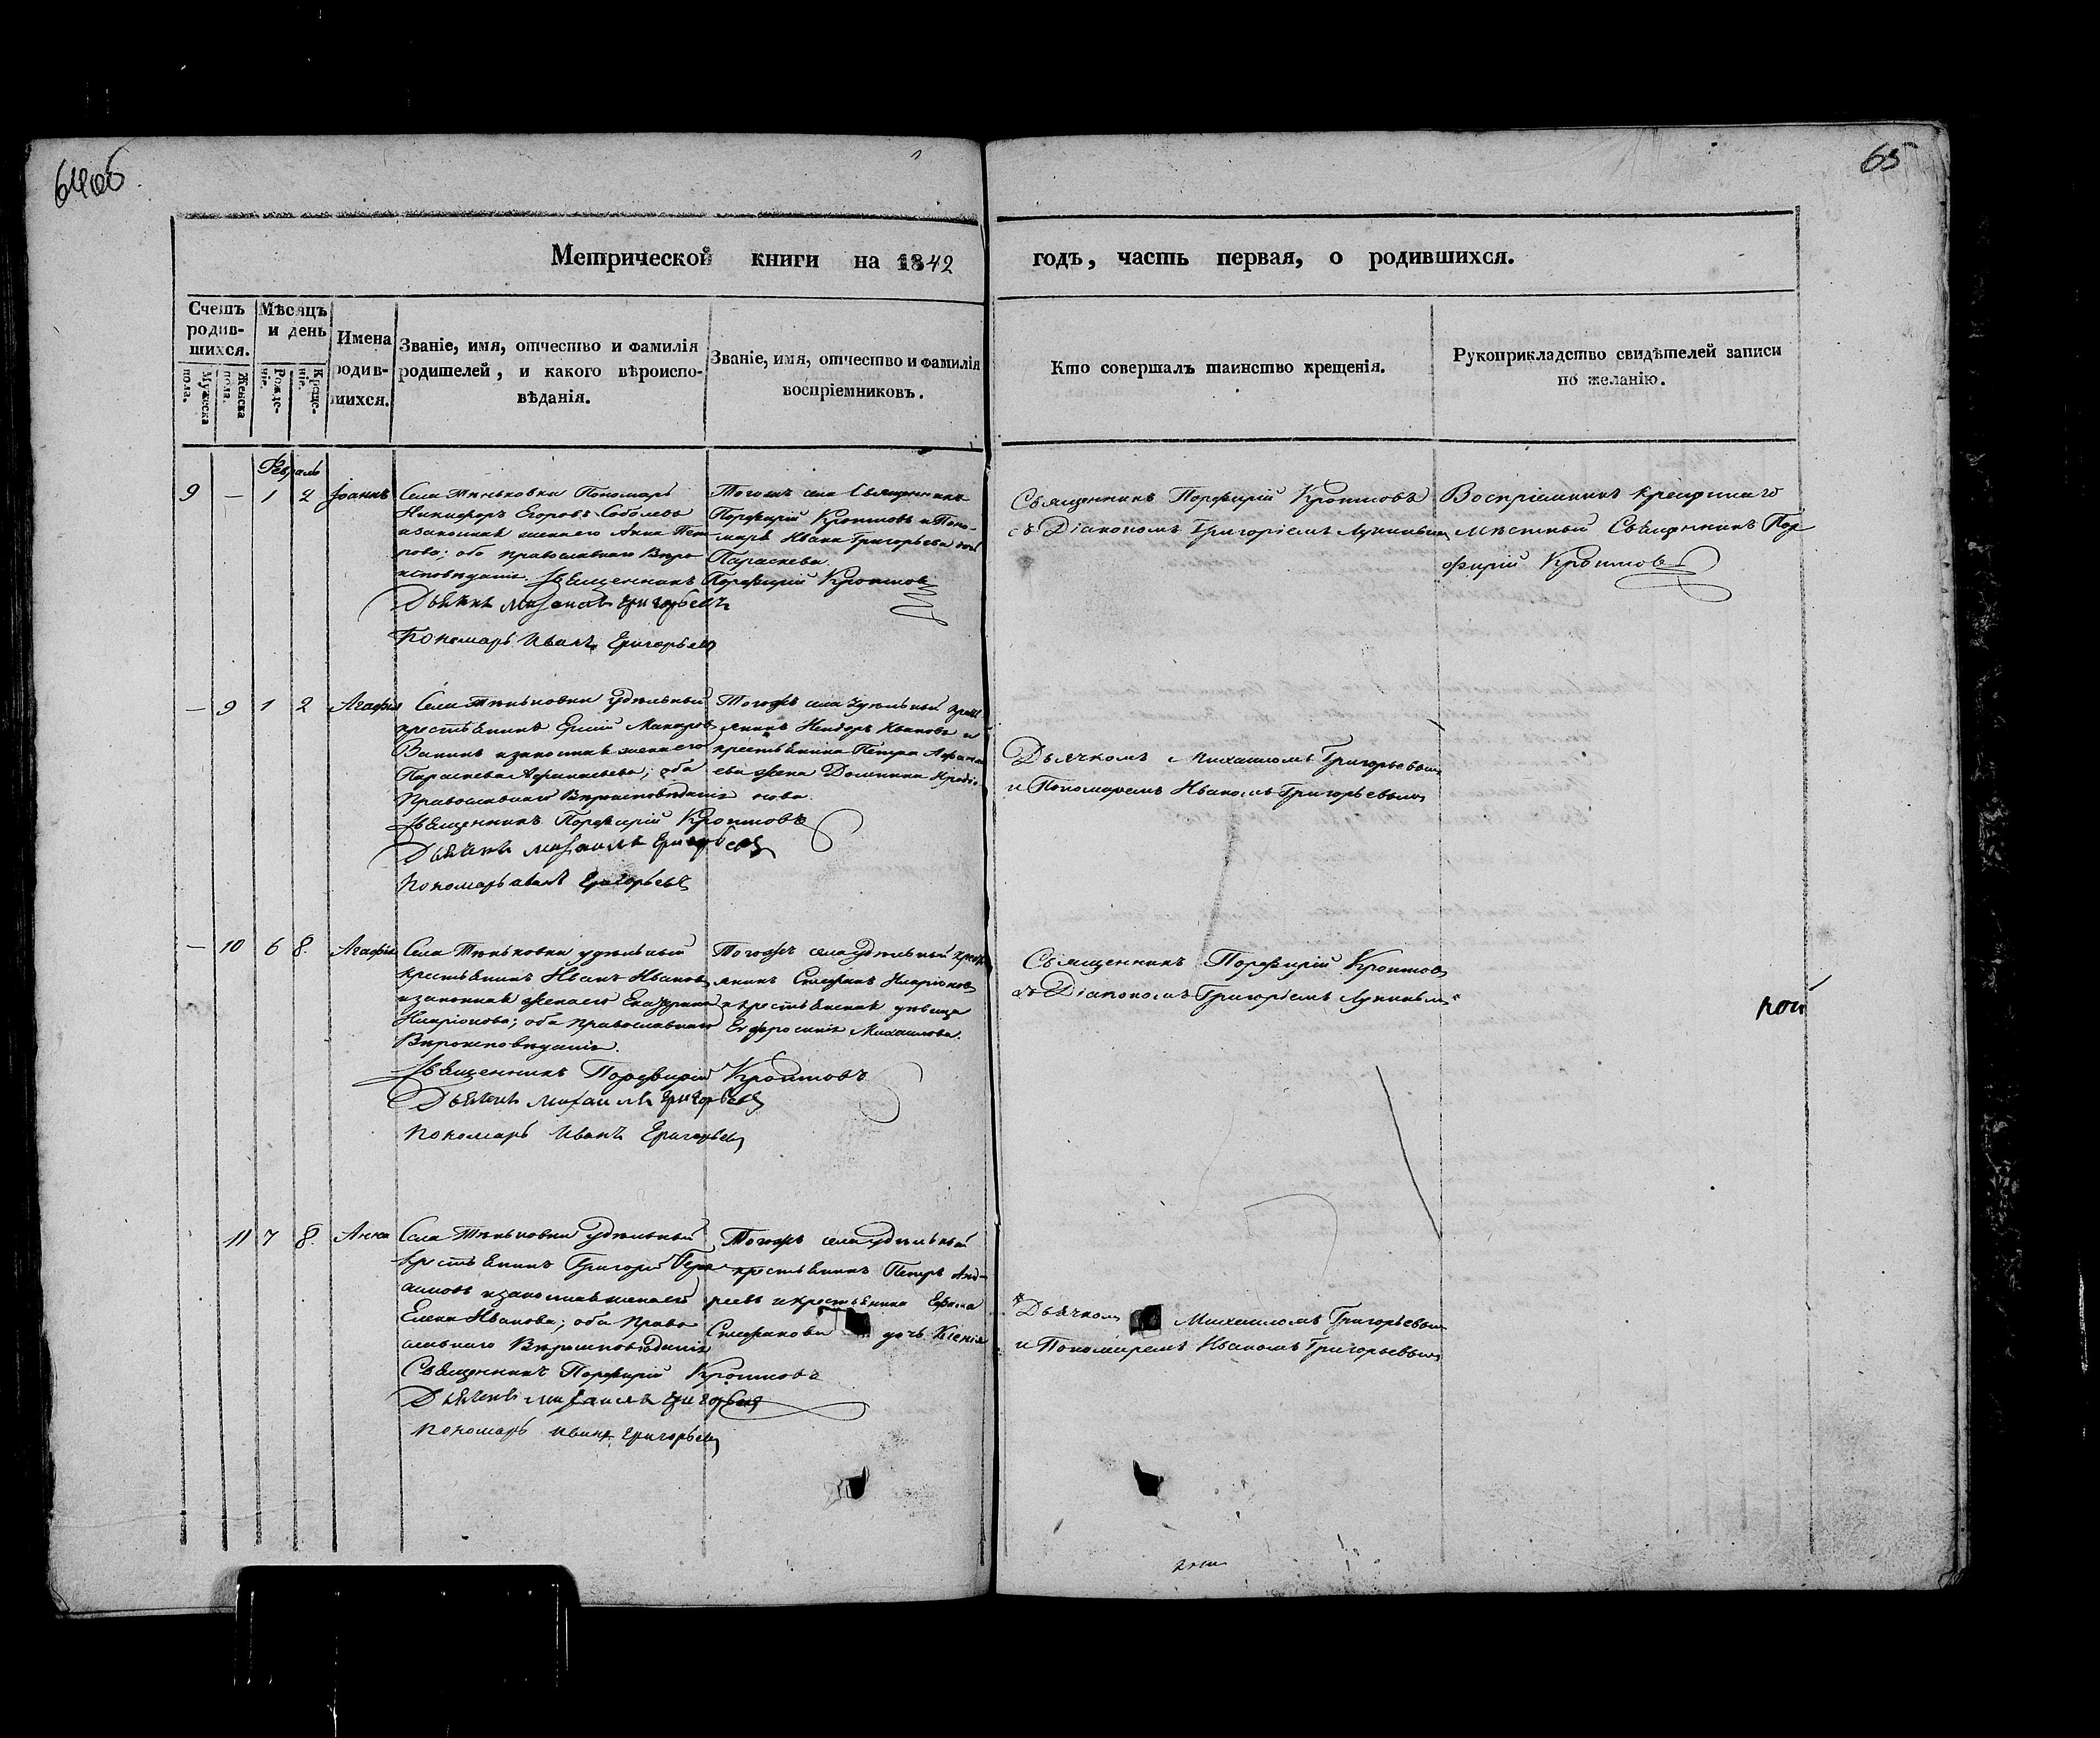 64об
65
Метрической книги на 1842
годъ, часть первая, о родившихся.
Счетъ родив-шихся.
Мужеска пола.
Женска пола.
Мѣсяцъ и день
Рожде-ніе.
Креще-ніе.
Имена родив-шихся.
Званіе, имя, отчество и фамилія
родителей, и какого вѣроиспо-
вѣданія.
Званіе, имя, отчество и фамилія
воспріемниковъ.
Кто совершалъ таинство крещенія.
Рукоприкладство свидѣтелей записи
по желанію.
Февраль
9 — 1 2 Іоаннъ
Села Тиньковки Пономарь
Никифоръ Егоровъ Соболевъ
и законная жена его Анна Пет
рова; оба православнаго Веро
исповѣданія. Священникъ Порфирій Кроптовъ
Дьячекъ Михаилъ Григорьевъ
Пономарь Иванъ Григорьевъ
Тогожъ села Священникъ
Порфирій Кроптовъ и Поно-
маря Ивана Григорьева дочь
Параскева
Священникъ Порфирій Кроптовъ
съ Діакономъ Григоріемъ
Воспріемникъ
мѣстный Священникъ Пор
фирій Кроптовъ
— 9 1 2 Агафія
Села Тиньковки удѣльный
крестьянинъ Макаровъ
и законная жена его
Параскева Афанасьева; оба
Православнаго Вероисповѣданія
Священникъ Порфирій Кроптовъ
Дьячекъ Михаилъ Григорьевъ
Пономарь Иванъ Григорьевъ
Тогожъ села удѣльный крест
янинъ Ивановъ и
крестьянина Петра Афанась
ева жена Домника
Дьячкомъ Михаиломъ Григорьевымъ
и Пономаремъ Иваномъ Григорьевымъ
— 10 6 8. Агафія
Села Тиньковки удѣльный
крестьянинъ Иванъ Ивановъ
и законная жена его Екатерина
Иларіонова; оба православнаго
Вероисповѣданія.
Священникъ Порфирій Кроптовъ
Дьячекъ Михаилъ Григорьевъ
Пономарь Иванъ Григорьевъ
Тогожъ села удѣльный крест
янинъ Стефанъ Иларіоновъ
и крестьянская дѣвица
Евфросинія Михаилова.
Священникъ Порфирій Кроптовъ
съ Діакономъ Григоріемъ
кой
11 7 8. Анна
Села Тиньковки удѣльный
крестьянинъ Григорій Гера
симовъ и законная жена его
Елена Иванова; оба Право
славнаго Вероисповѣданія
Священникъ Порфирій Кроптовъ
Дьячекъ Михаилъ Григорьевъ
Пономарь Иванъ Григорьевъ
Тогожъ села удѣльный
крестьянинъ Петръ Анд-
реевъ и крестьянина Ефима
Стефанова дочь Ксенія
Дьячкомъ Михаиломъ Григорьевымъ
и Пономаремъ Иваномъ Григорьевымъ